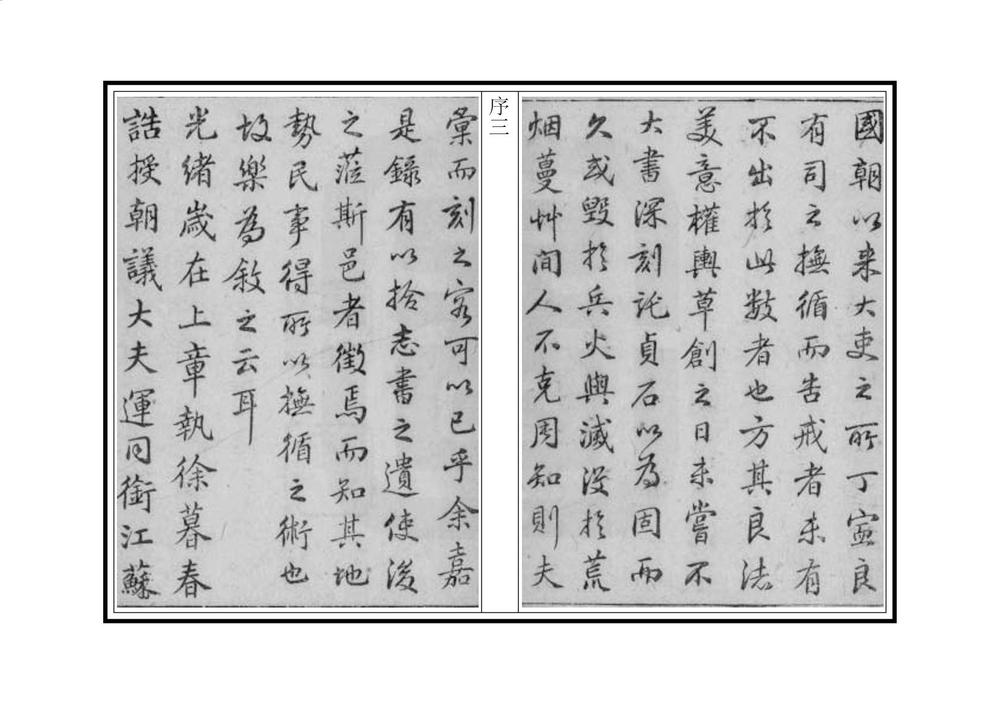 國朝以来大吏之所丁寍良
有司之撫循而告戒者未有
不出於此数者也方其良法
美意權輿草創之日未嘗不
大書深刻託貞石以為固而
久或毀於兵火與滅没於荒
烟蔓艸間人不克周知則夫
序三
彙而刻之客可以已乎余嘉
是錄有以拾志書之遺使後
之蒞斯邑者徵焉而知其地
勢民事得所以撫循之術也
故樂為敘之云耳
光緒歲在上章執徐暮春
誥授朝議大夫運同銜江蘇